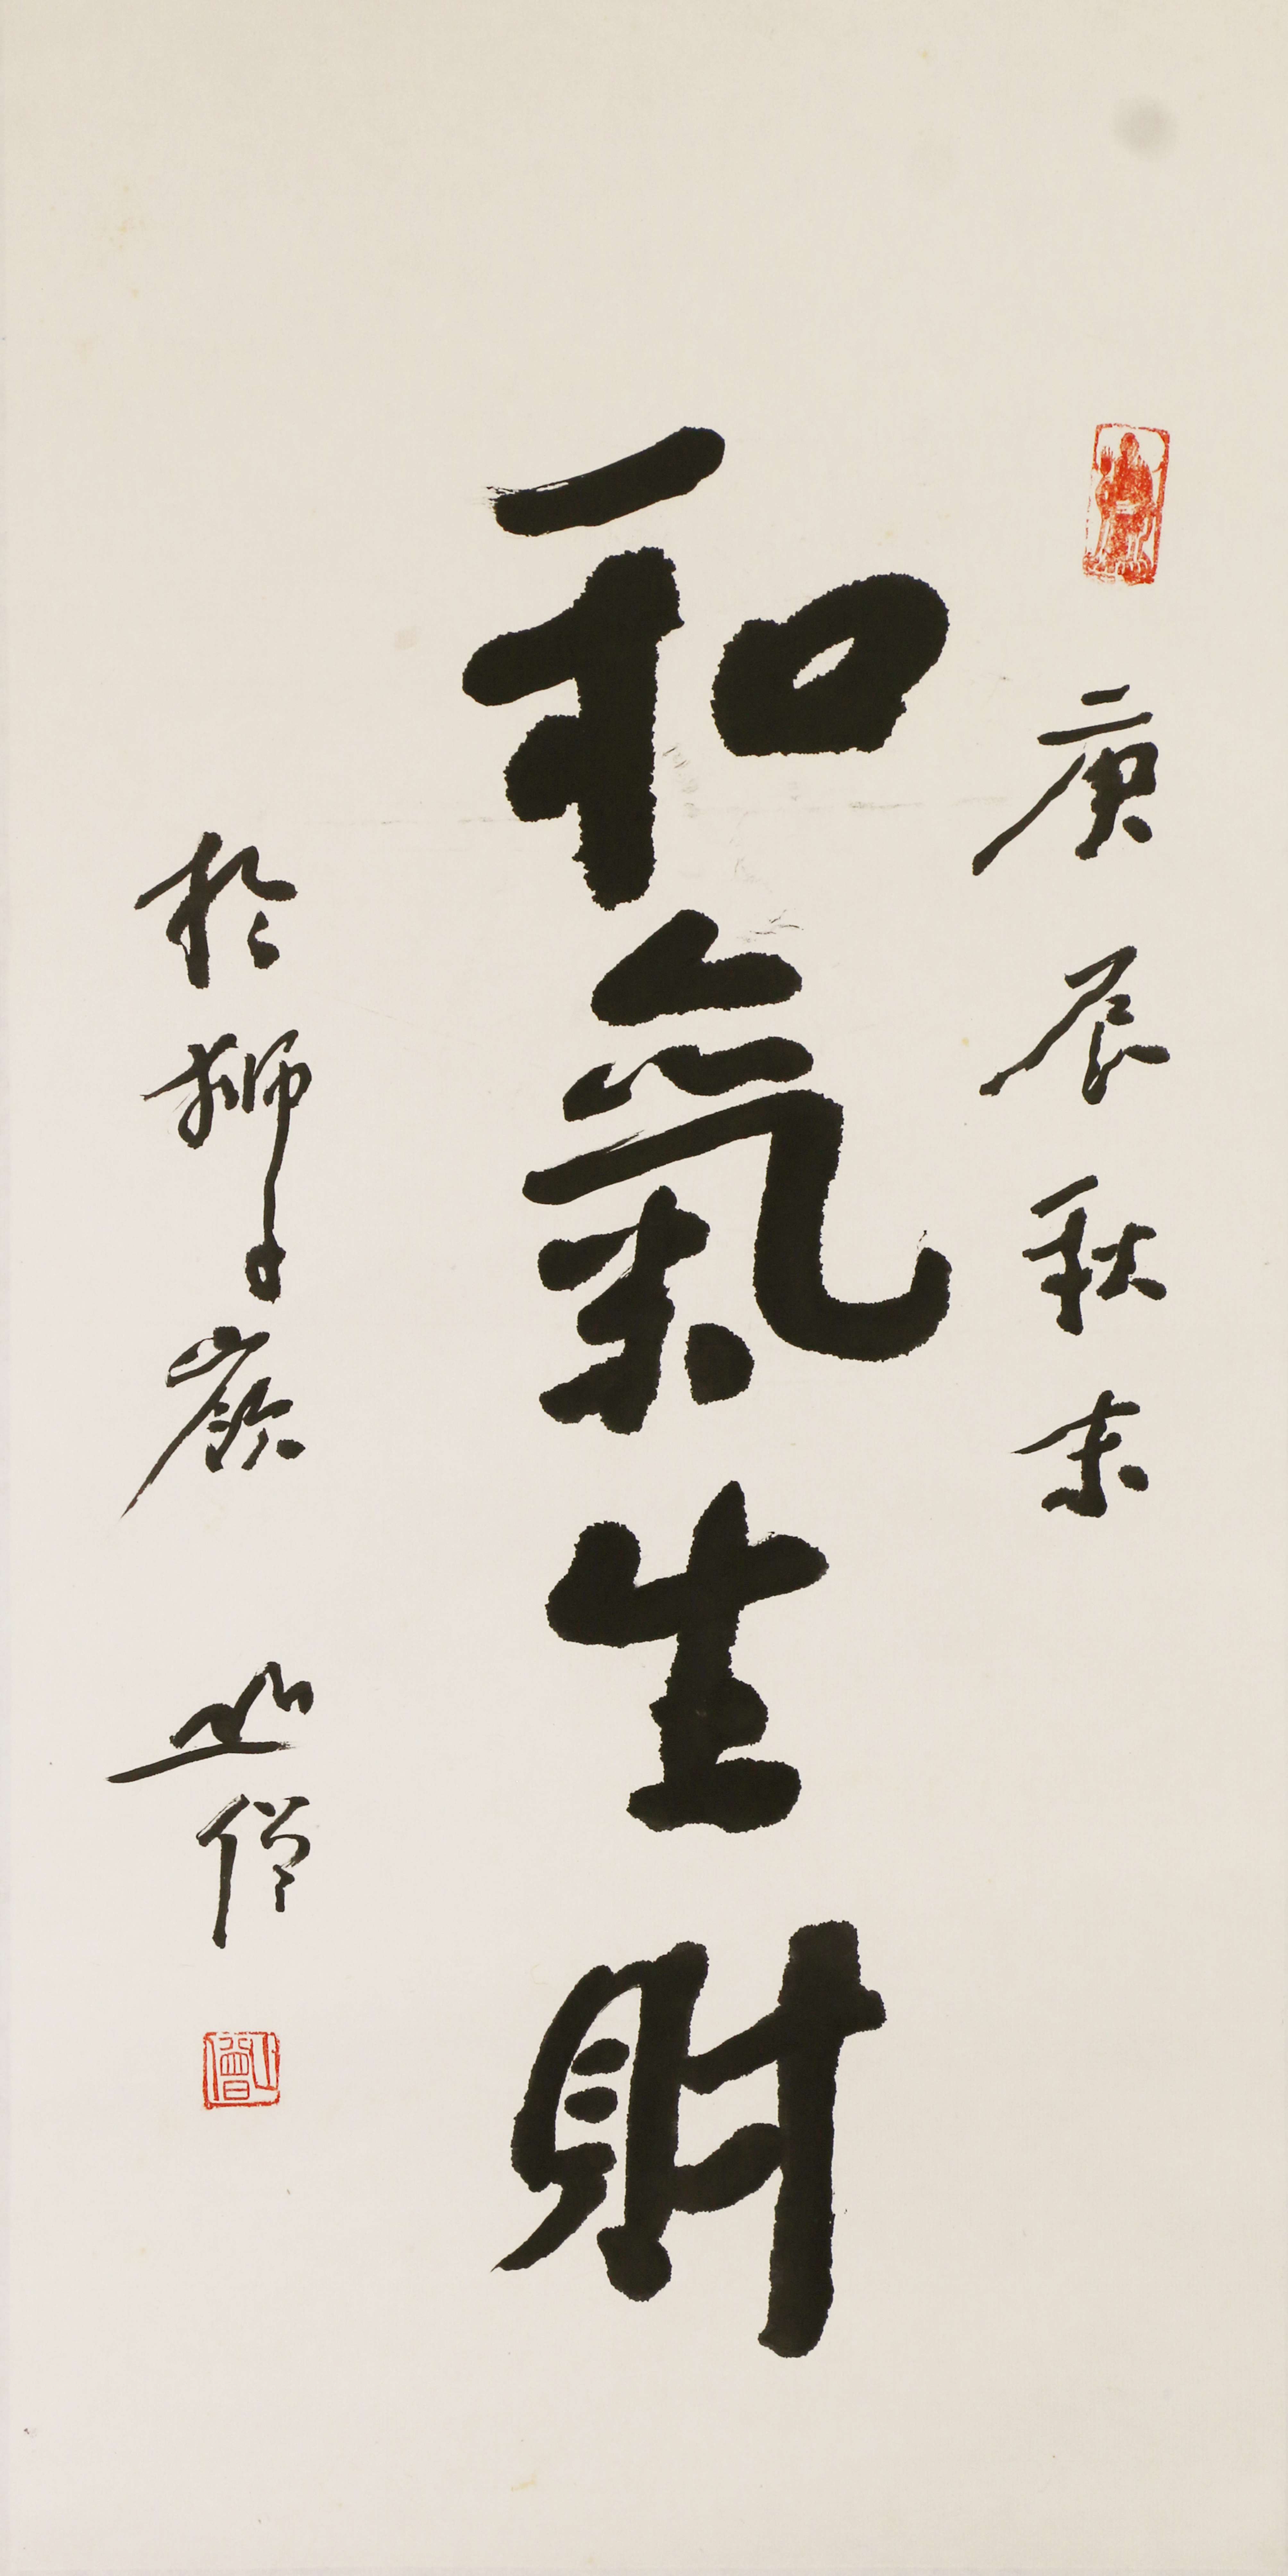 庚辰秋末
和氣生財
於獅子嶺
山僧